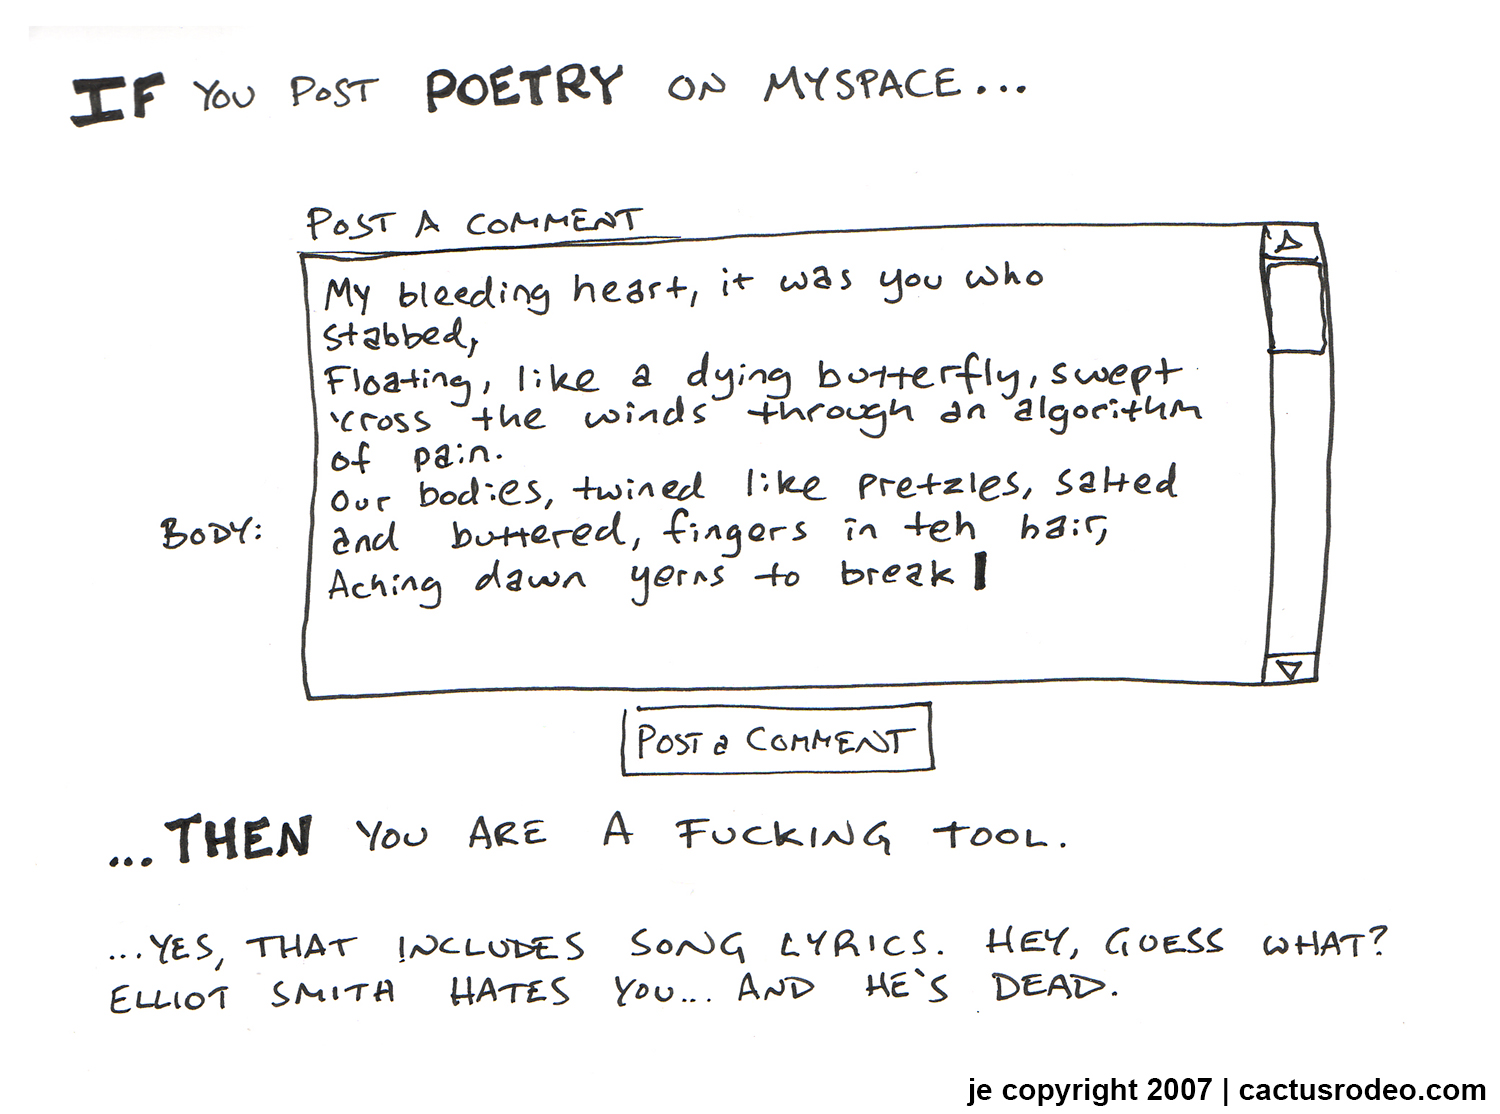 IF YOU POST POETRY ON MYSPACE...
POST A COMMENT
My bleeding heart, it was you who
stabbed,
Floating, like a dying butterfly, swept
'cross the winds through an algorithm
of pain.
Our bodies, twined like pretzles, salted
BODY:
and buttered, fingers in teh hair,
Aching dawn yerns to break
POST a COMMENT
...THEN YOU ARE A FUCKING TOOL.
...YES, THAT INCLUDES SONG LYRICS. HEY, GUESS WHAT?
ELLIOT SMITH HATES YOU... AND HE'S DEAD.
je copyright 2007 | cactusrodeo.com